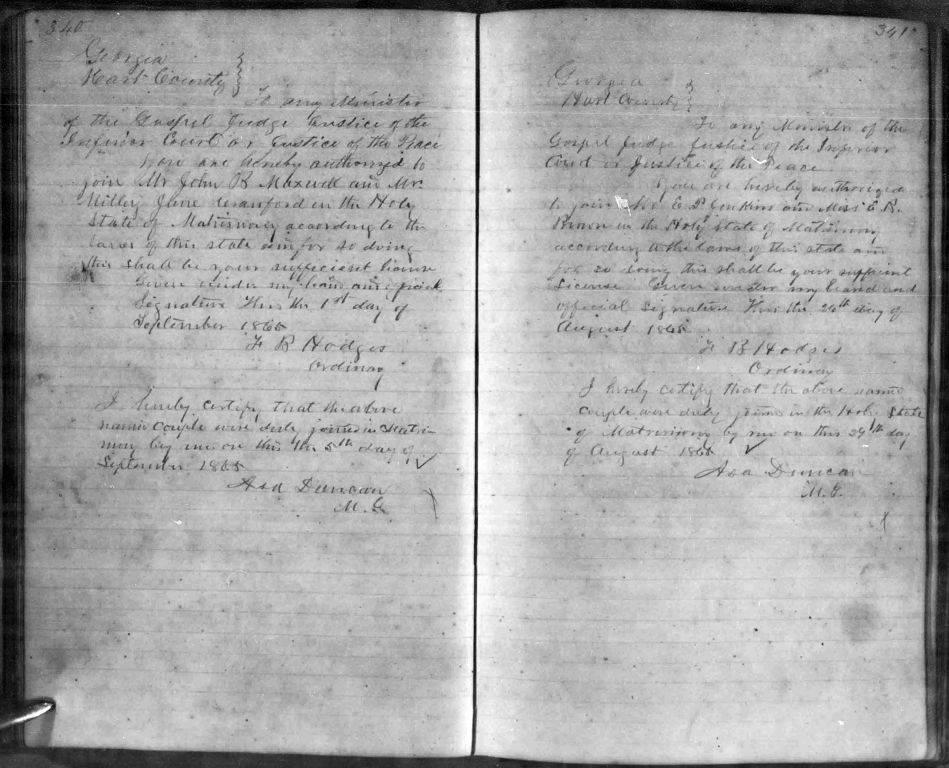 340
Georgia
Hart County
To any Minister
of the Gospel Judge Justice of the
Inferior Court or Justice of the Peace
You are hereby authorized to
join Mr John B Maxwell and Mr.
Milly Jane in the Holy
State of Matrimony according to the
Laws of this state and for so doing
this shall be your sufficient license
Given under my hand and official
Signature this the 1st day of
September 1865
F B Hodges
Ordinary
I hereby certify that the above
named couple were duly joined in Matri
mony by me on this the 5th day of
September 1865
Asa Duncan
M. G.
341
Georgia
Hart County
To any Minister of the
Gospel Judge Justice of the Inferior
Court or Justice of the Peace
You are hereby authorized
to join Mr E P Jenkins and Miss E. R.
Brown in the Holy State of Matrimony
according to the laws of this state and
for so doing this shall be your sufficient
License Given under my hand and
official Signature this the 26th day of
August 1865
F B Hodges
Ordinary
I hereby certify that the above named
couple were duly joined in the Holy State
of Matrimony by me on this 29th day
of August 1865
Asa Duncan
M. G.